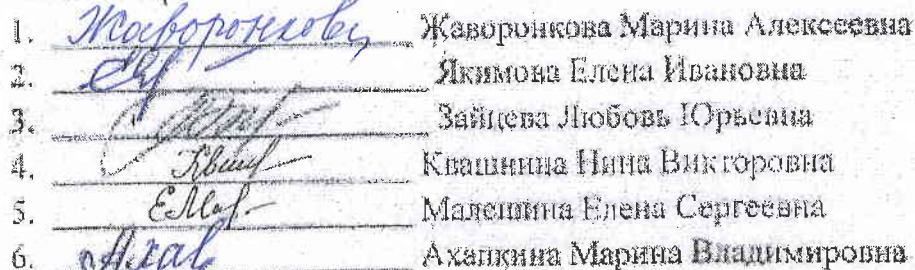 1. Жаворонкова Жаворонкова Марина Алексеевна
2. Якимова Елена Ивановна
3. Зайцева Любовь Юрьевна
4. Квашнина Нина Викторовна
5. Малешина Елена Сергеевна
6. Ахапкина Марина Владимировна